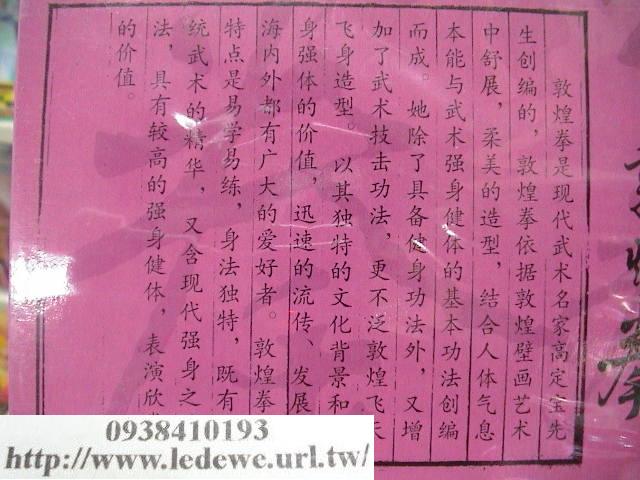 敦煌拳是现代武术名家高定宝先
生创编的，敦煌拳依据敦煌壁画艺术
中舒展，柔美的造型，结合人体气息
本能与武术强身健体的基本功法创编
而成。她除了具备健身功法外，又增
加了武术技击功法，更不泛敦煌飞天
飞身造型。以其独特的文化背景和
身强体的价值，迅速的流传、发展
海内外都有广大的爱好者。敦煌拳
特点是易学易练，身法独特，既有
统武术的精华，又含现代强身之
法，具有较高的强身健体，表演欣
的价值。
0938410193
http://www.ledewe.url.tw/